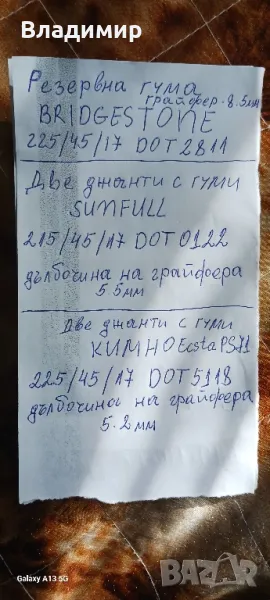 Владимир
Резервна гума
грайфер-8.5мм
BRIDGESTONE
225/45/17 DOT 2811
Две джанти с гуми
SUNFULL
215/45/17 DOT 0122
дълбочина на грайфера
5.5мм
Две джанти с гуми
KUMHO Ecsta PS71
225/45/17 DOT 5118
дълбочина на грайфера
5.2 мм
Galaxy A13 5G
BAZAR